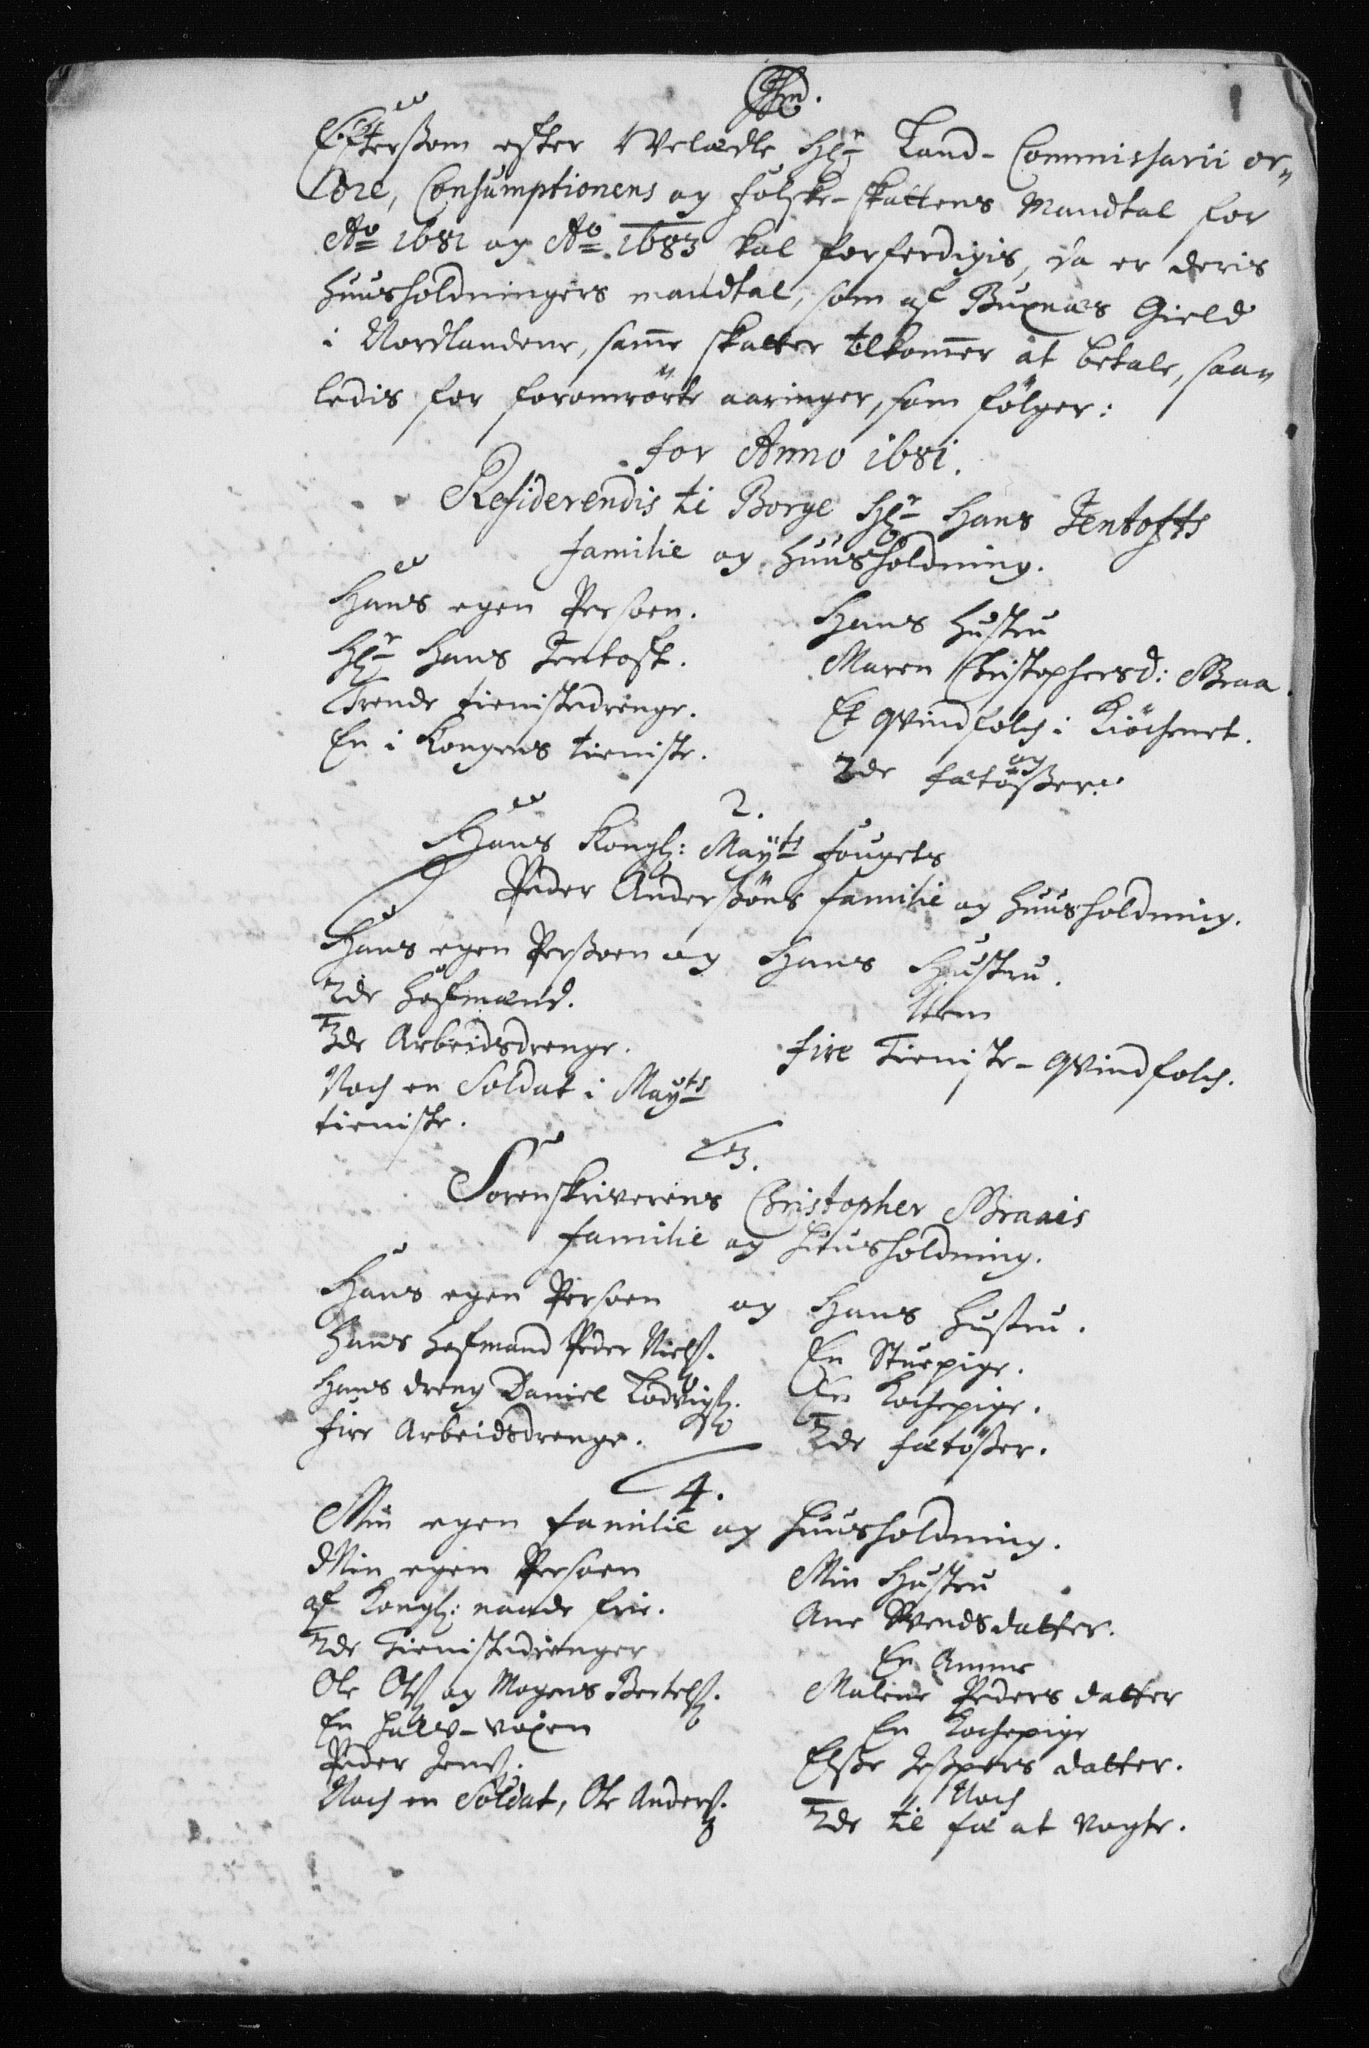 Eftersom efter Welædle Hr Land-Commissarii or„
dre, Consumptionens og folske-skattens Mandtal for
Ao 1681 og Ao 1683 skal forferdigis, da er deris
huusholdningers mandtal, som af Buxnæs Gield
i Nordlandene, samme skatter tilkommer at betale, saa„
ledis for foromrörte aaringer, som fölger:
for Anno 1681.
Residerendis ti Borge Hr Hans Jentofts
familie og huusholdning.
Hans egen Persoen.
Hr Hans Jentoft.
Trende tienistedrenge.
En i Kongens tieniste.
Hans Hustru
Maren Christophersd: Braa.
Et qvindfolch i Kiöchenet.
og
2de fætößer.
2.
Hans Kongl: Mayts fougets
Peder Anderßöns familie og huusholdning.
Hans egen Perßoen og Hans Hustru.
2de hofmænd.
3de Arbeidsdrenge.
Noch en Soldat i Mayts
tieniste.
Item
fire Tieniste-qvindfolch.
3.
Sorenskriverens Christopher Braaes
familie og huusholdning.
Hans egen Persoen og Hans Hustru.
Hans hofmand Peder Nielß.
Hans dreng Daniel Lodvigß.
fire Arbeidsdrenge.
En Stuepige.
En Kochepige.
2de fætößer.
4.
Min egen familie og huusholdning.
Min egen Persoen
af Kongl: naade frie.
2de Tienistedrenger
Ole Olß og Mogens Bertelß.
En halv-voxen
Peder Jenß.
Noch en Soldat, Ole Anderß.
Min Hustru
Ane Svendsdatter.
En Amme
Malene Peders datter
En Kochepige
Elße Jeßpers datter.
Noch
2de til fæ at vogte.